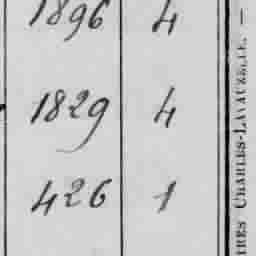 1896 4
1829 4
426 1
IRES CHARLES-LAVAUZELLE. —